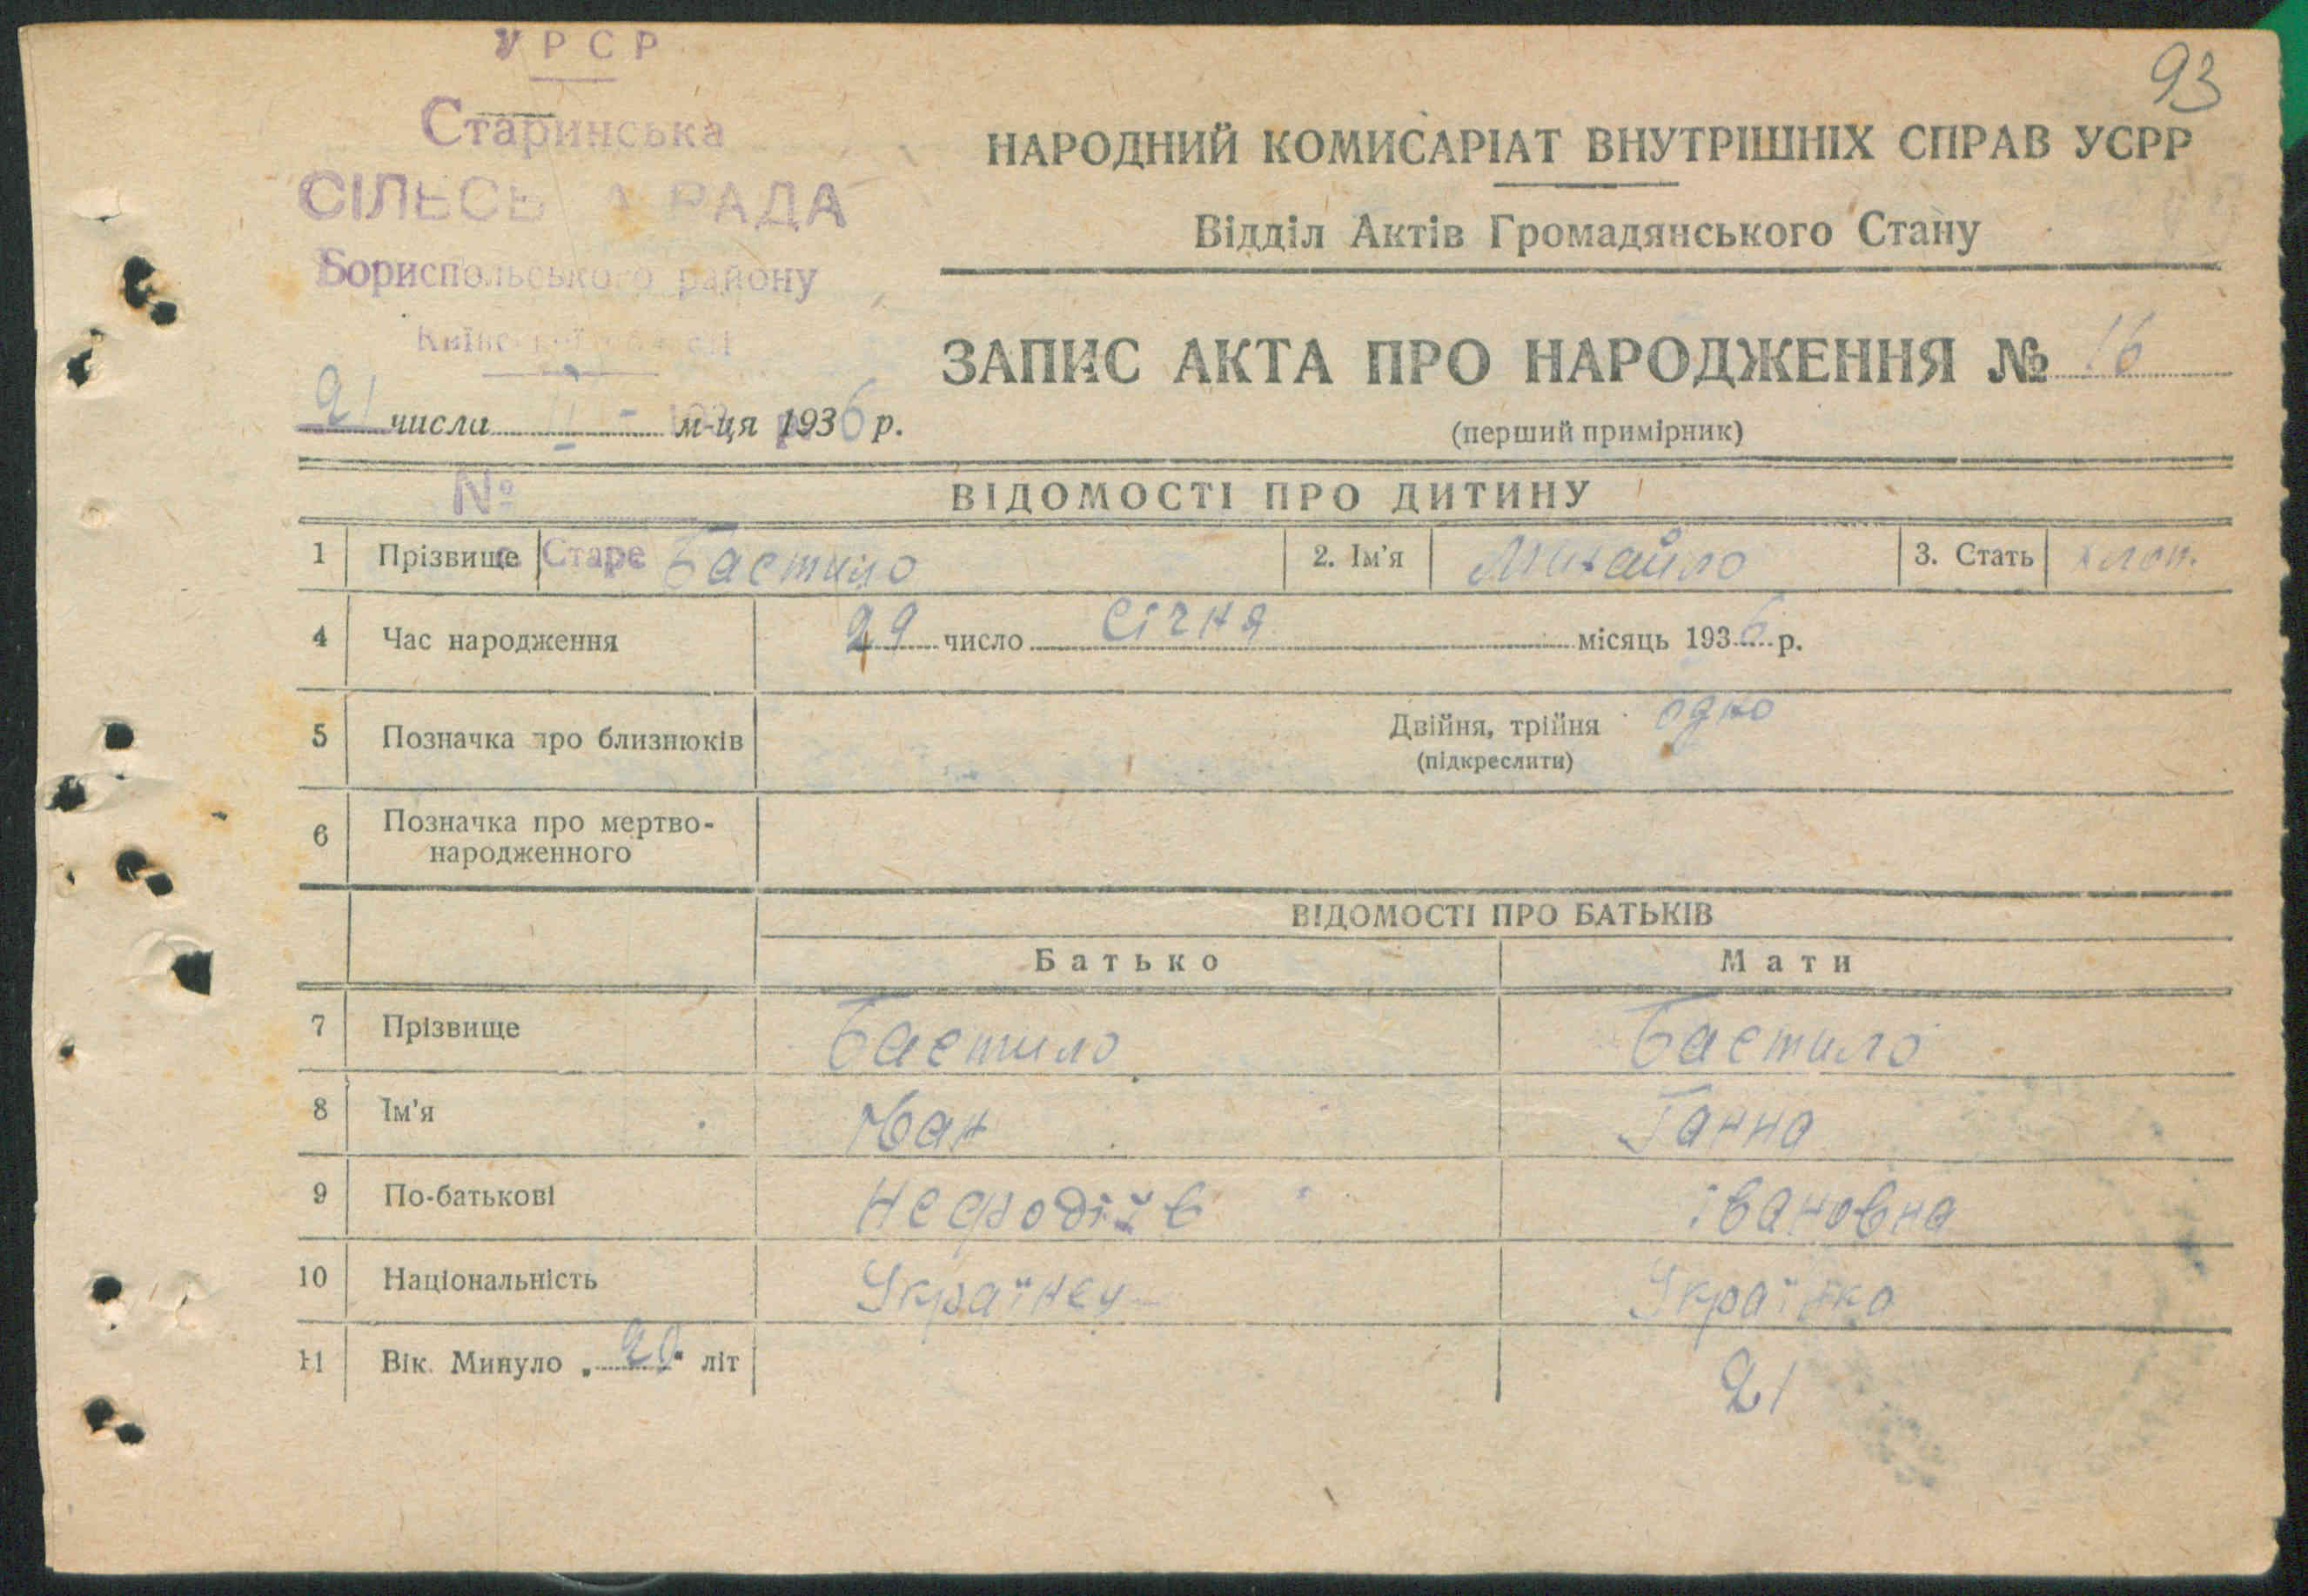 93
УРСР
Старинська
СІЛЬСЬКА РАДА
Бориспольського району
Київської області
НАРОДНИЙ КОМИСАРІАТ ВНУТРІШНІХ СПРАВ УСРР
Відділ Актів Громадянського Стану
ЗАПИС АКТА ПРО НАРОДЖЕННЯ № 16
(перший примірник)
21 числа II м-ця 1936 р.
№
ВІДОМОСТІ ПРО ДИТИНУ
1 Прізвище Бастило 2. Ім'я Михайло 3. Стать хлоп.
с. Старе
4 Час народження 29 число січня місяць 1936 р.
5 Позначка про близнюків Двійня, трійня одно
(підкреслити)
6 Позначка про мертво-
народженного
ВІДОМОСТІ ПРО БАТЬКІВ
Батько Мати
7 Прізвище Бастило Бастило
8 Ім'я Іван Ганна
9 По-батькові Нефодіїв івановна
10 Національність Українец Українка
11 Вік. Минуло „20“ літ 21